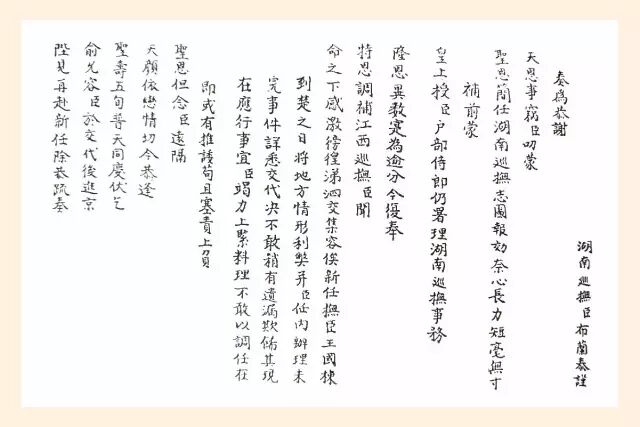 湖南巡撫臣布蘭泰謹
奏為恭謝
天恩事竊臣叨蒙
聖恩簡任湖南巡撫志圖報効奈心長力短毫無寸
補前蒙
皇上授臣户部侍郎仍署理湖南巡撫事務
隆恩異数寔為逾分今復奉
特恩調補江西巡撫臣聞
命之下感激徬徨涕泗交集容俟新任撫臣王國棟
到楚之日将地方情形利獘并臣任内辦理未
完事件詳悉交代决不敢稍有遺漏欺餙其現
在應行事宜臣竭力上緊料理不敢以調任在
即或有推諉苟且塞責上負
聖恩但念臣遠隔
天顔依戀情切今恭逢
聖壽五旬普天同慶伏乞
俞允容臣於交代後進京
陛見再赴新任除恭疏奏